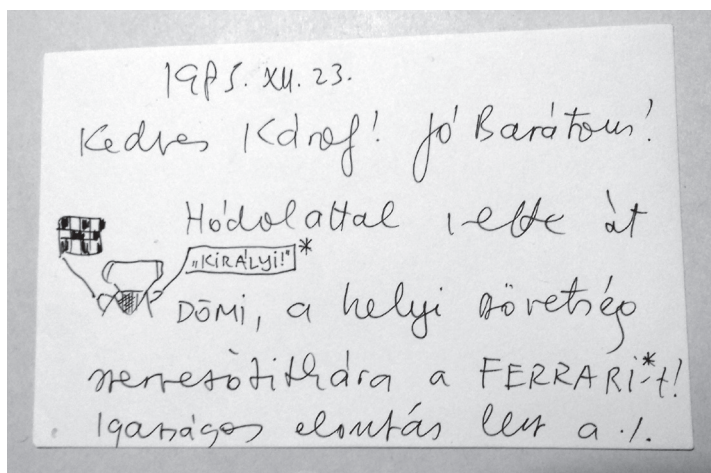 1985. XII. 23.
Kedves Károly! Jó Barátom!
Hódolattal vette át
„KIRÁLYI!"*
DÖMI, a helyi szövetség
szervezőtitkára a FERRARI*-t!
Igazságos elosztás lesz a ./.